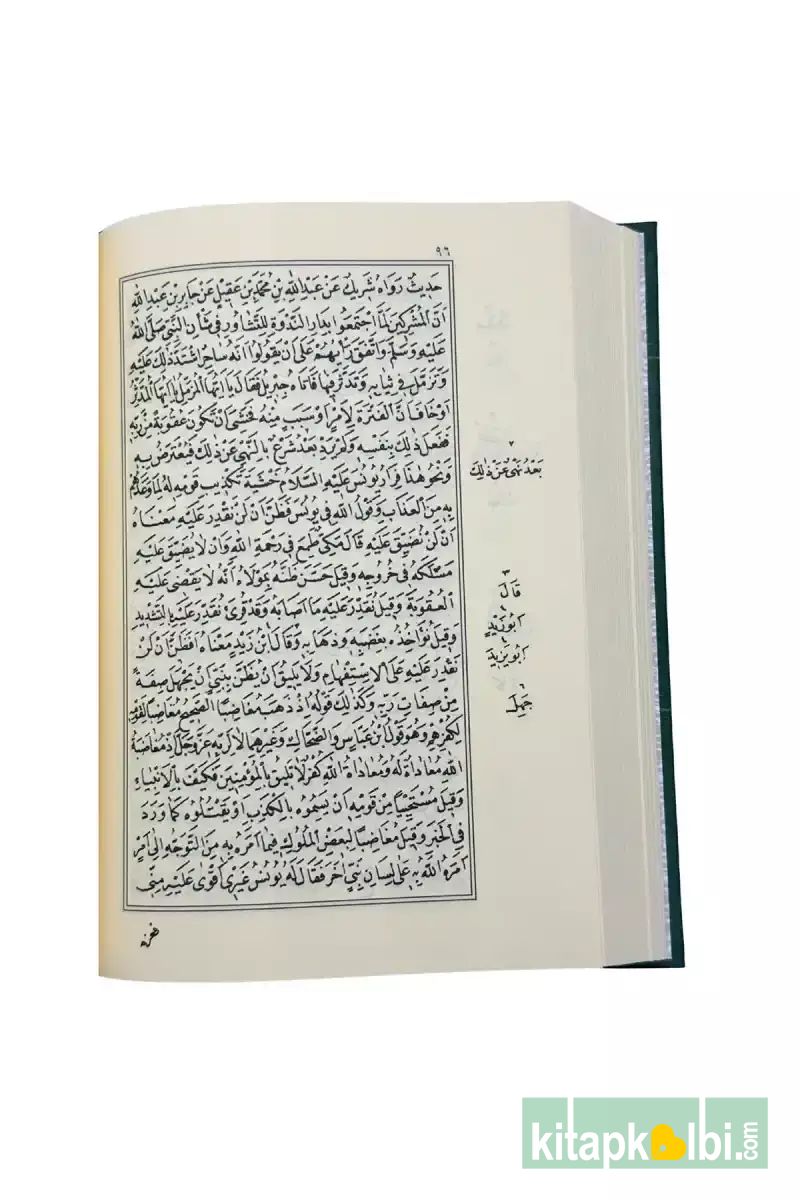 ٩٦
حَدِيثٌ رَوَاهُ شَرِيكٌ عَنْ عَبْدِ اللّٰهِ بْنِ مُحَمَّدِ بْنِ عَقِيلٍ عَنْ جَابِرِ بْنِ عَبْدِ اللّٰهِ
اَنَّ الْمُشْرِكِينَ لَمَّا اجْتَمَعُوا بِدَارِ النَّدْوَةِ لِلتَّشَاوُرِ فِي شَأْنِ النَّبِيِّ صَلَّى اللّٰهُ
عَلَيْهِ وَسَلَّمَ وَاتَّفَقَ رَأْيُهُمْ عَلٰى اَنْ يَقُولُوا اَنَّهُ سَاحِرٌ اشْتَدَّ ذٰلِكَ عَلَيْهِ
وَتَزَمَّلَ فِي ثِيَابِهِ وَتَدَثَّرَ فِيهَا فَاَتَاهُ جِبْرِيلُ فَقَالَ يَا اَيُّهَا الْمُزَّمِّلُ يَا اَيُّهَا الْمُدَّثِّرُ
اَوْ خَافَ اَنَّ الْفَتْرَةَ لِاَمْرٍ اَوْ سَبَبٍ مِنْهُ فَخَشِيَ اَنْ تَكُونَ عُقُوبَةً مِنْ رَبِّهِ
فَفَعَلَ ذٰلِكَ بِنَفْسِهِ وَلَمْ يَرِدْ بَعْدُ شَرْعٌ بِالنَّهْيِ عَنْ ذٰلِكَ فَيُعْتَرَضُ بِهِ
وَنَحْوُ هٰذَا فِرَارُ يُونُسَ عَلَيْهِ السَّلَامُ خَشْيَةَ تَكْذِيبِ قَوْمِهِ لَهُ لِمَا وَعَدَهُمْ
بِهِ مِنَ الْعَذَابِ وَقَوْلُ اللّٰهِ فِي يُونُسَ فَظَنَّ اَنْ لَنْ نَقْدِرَ عَلَيْهِ مَعْنَاهُ
اَنْ لَنْ نُضَيِّقَ عَلَيْهِ قَالَ مَكِّيٌّ طَمِعَ فِي رَحْمَةِ اللّٰهِ وَاَنْ لَا يُضَيِّقَ عَلَيْهِ
مَسْلَكَهُ فِي خُرُوجِهِ وَقِيلَ حَسَّنَ ظَنَّهُ بِمَوْلَاهُ اَنَّهُ لَا يَقْضِي عَلَيْهِ
الْعُقُوبَةَ وَقِيلَ نُقَدِّرُ عَلَيْهِ مَا اَصَابَهُ وَقَدْ قُرِئَ نُقَدِّرَ عَلَيْهِ بِالتَّشْدِيدِ
وَقِيلَ نُؤَاخِذُهُ بِغَضَبِهِ وَذَهَابِهِ وَقَالَ ابْنُ زَيْدٍ مَعْنَاهُ اَفَظَنَّ اَنْ لَنْ
نَقْدِرَ عَلَيْهِ عَلَى الْاِسْتِفْهَامِ وَلَا يَلِيقُ اَنْ يُظَنَّ بِنَبِيٍّ اَنْ يَجْهَلَ صِفَةً
مِنْ صِفَاتِ رَبِّهِ وَكَذٰلِكَ قَوْلُهُ اِذْ ذَهَبَ مُغَاضِبًا الصَّحِيحُ مُغَاضِبًا لِقَوْمِهِ
لِكُفْرِهِمْ وَهُوَ قَوْلُ ابْنِ عَبَّاسٍ وَالضَّحَّاكِ وَغَيْرِهِمَا لَا لِرَبِّهِ عَزَّ وَجَلَّ اِذْ مُغَاضَبَةُ
اللّٰهِ مُعَادَاةٌ لَهُ وَمُعَادَاةُ اللّٰهِ كُفْرٌ لَا تَلِيقُ بِالْمُؤْمِنِينَ فَكَيْفَ بِالْاَنْبِيَاءِ
وَقِيلَ مُسْتَحْيِيًا مِنْ قَوْمِهِ اَنْ يَسِمُوهُ بِالْكَذِبِ اَوْ يَقْتُلُوهُ كَمَا وَرَدَ
فِي الْخَبَرِ وَقِيلَ مُغَاضِبًا لِبَعْضِ الْمُلُوكِ فِيمَا اَمَرَهُ بِهِ مِنَ التَّوَجُّهِ اِلٰى اَمْرٍ
اَمَرَهُ اللّٰهُ بِهِ عَلٰى لِسَانِ نَبِيٍّ اٰخَرَ فَقَالَ لَهُ يُونُسُ غَيْرِي اَقْوٰى عَلَيْهِ مِنِّي
بَعْدُ نَهْيٌ عَنْ ذٰلِكَ
٣
قَالَ
اَبُو زَيْدٍ
اَبُو يَزِيدَ
٦
جَهِلَ
kitapkalbi.com